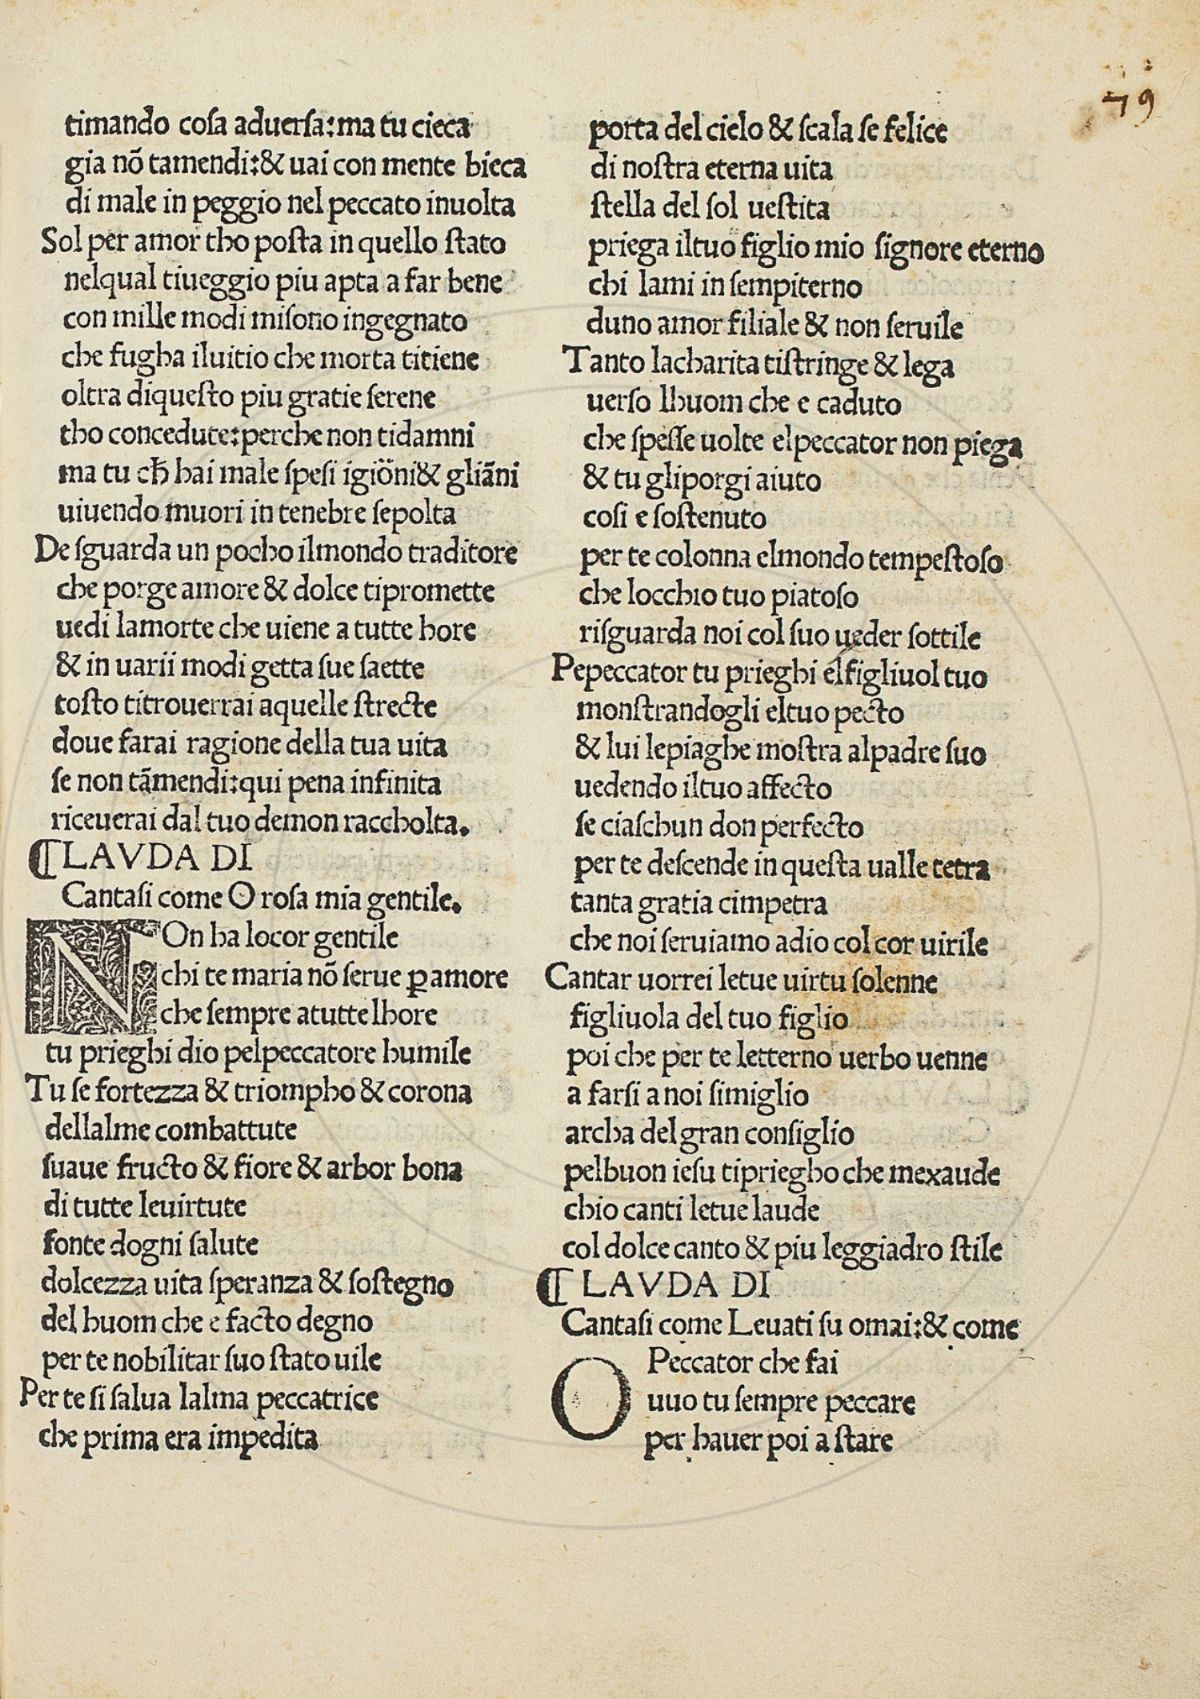 79
timando cosa aduersa:ma tu cieca
gia nō tamendi:& uai con mente bieca
di male in peggio nel peccato inuolta
Sol per amor tho posta in quello stato
nelqual tiueggio piu apta a far bene
con mille modi misono ingegnato
che fugha iluitio che morta titiene
oltra diquesto piu gratie serene
tho concedute:perche non tidamni
ma tu cħ hai male spesi igiōni& gliāni
uiuendo muori in tenebre sepolta
De sguarda un pocho ilmondo traditore
che porge amore & dolce tipromette
uedi lamorte che uiene a tutte hore
& in uarii modi getta sue saette
tosto titrouerrai aquelle strecte
doue farai ragione della tua uita
se non tāmendi:qui pena infinita
riceuerai dal tuo demon raccholta.
¶LAVDA DI
Cantasi come O rosa mia gentile.
NOn ha locor gentile
chi te maria nō serue ꝑ amore
che sempre atutte lhore
tu prieghi dio pelpeccatore humile
Tu se fortezza & triompho & corona
dellalme combattute
suaue fructo & fiore & arbor bona
di tutte leuirtute
fonte dogni salute
dolcezza uita speranza & sostegno
del huom che e facto degno
per te nobilitar suo stato uile
Per te si salua lalma peccatrice
che prima era impedita
porta del cielo & scala se felice
di nostra eterna uita
stella del sol uestita
priega iltuo figlio mio signore eterno
chi lami in sempiterno
duno amor filiale & non seruile
Tanto lacharita tistringe & lega
uerso lhuom che e caduto
che spesse uolte elpeccator non piega
& tu gliporgi aiuto
cosi e sostenuto
per te colonna elmondo tempestoso
che locchio tuo piatoso
risguarda noi col suo ueder sottile
Pepeccator tu prieghi elfigliuol tuo
monstrandogli eltuo pecto
& lui lepiaghe mostra alpadre suo
uedendo iltuo affecto
se ciaschun don perfecto
per te descende in questa ualle tetra
tanta gratia cimpetra
che noi seruiamo adio col cor uirile
Cantar uorrei letue uirtu solenne
figliuola del tuo figlio
poi che per te letterno uerbo uenne
a farsi a noi simiglio
archa del gran consiglio
pelbuon iesu tipriegho che mexaude
chio canti letue laude
col dolce canto & piu leggiadro stile
¶ LAVDA DI
Cantasi come Leuati su omai:& come
O Peccator che fai
uuo tu sempre peccare
per hauer poi a stare